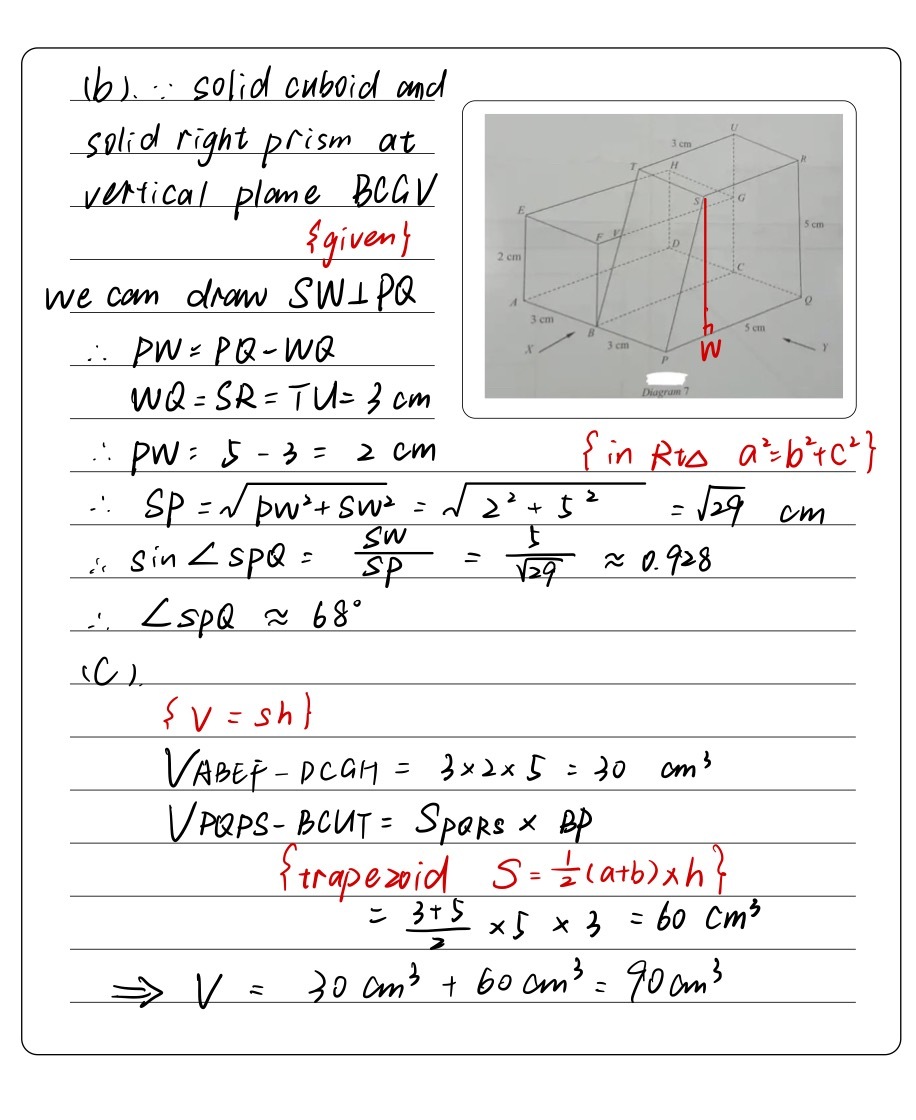 (b). ∵ solid cuboid and
solid right prism at
vertical plane BCGV
{given}
we can draw SW⊥PQ
∴ PW = PQ-WQ
WQ = SR = TU = 3 cm
∴ PW = 5 - 3 = 2 cm
{in Rt△ a²=b²+c²}
∴ SP = √PW²+SW² = √2²+5² = √29 cm
∴ sin∠SPQ = SW/SP = 5/√29 ≈ 0.928
∴ ∠SPQ ≈ 68°
(C).
{V = sh}
VABEF-DCGH = 3×2×5 = 30 cm³
VPQPS-BCUT = SPQRS × BP
{trapezoid S = 1/2(a+b)×h}
= 3+5/2 ×5 ×3 = 60 cm³
⇒ V = 30 cm³ + 60 cm³ = 90 cm³
U
3 cm
T
H
R
S
G
E
F
V
5 cm
2 cm
D
C
A
Q
3 cm
B
5 cm
X
3 cm
W
Y
P
Diagram 7